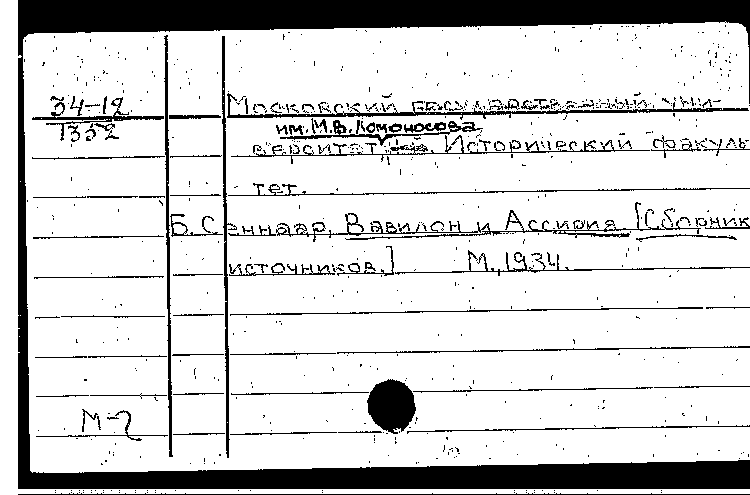 34-12
1352
Московский государственный уни-
им. М.В. Ломоносова
верситет. Исторический факуль
тет.
Б. Сеннаар, Вавилон и Ассирия [Сборник
источников.] М., 1934.
М-2